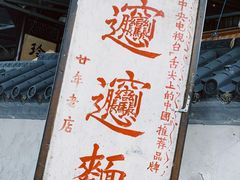 中央电视台“舌尖上的中國”推荐品牌
𰻞𰻞麵
廿年老店